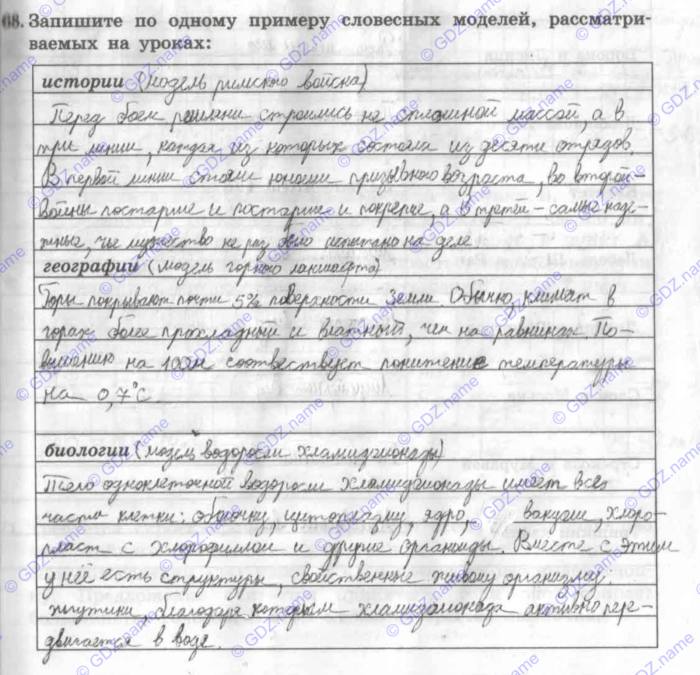 68. Запишите по одному примеру словесных моделей, рассматри-
ваемых на уроках:
истории (модель римского войска)
Перед боем римляне строились не сплошной массой, а в
три линии, каждая из которых состояла из десяти отрядов.
В первой линии стояли юноши призывного возраста, во второй -
войны постарше и постарше и покрепче, а в третей - самые наде-
жные, чье мужество не раз было испытано на деле
географии (модель горного ланшафта)
Горы покрывают почти 5% поверхности Земли. Обычно климат в
горах более прохладный и влажный, чем на равнинах. По-
вышению на 100м соотвествует понижение температуры
на 0,7°С
биологии (модель водоросли хламидомонады)
Тело одноклеточной водоросли хламидомонады имеет все
части клетки: оболочку, цитоплазму, ядро, вакуоли, хлоро-
пласт с хлорофиллом и другие органоиды. Вместе с этим
у неё есть структуры, свойственные живому организму:
жгутики, благодаря которым хламидомонада активно пере-
двигается в воде.
© GDZ.name